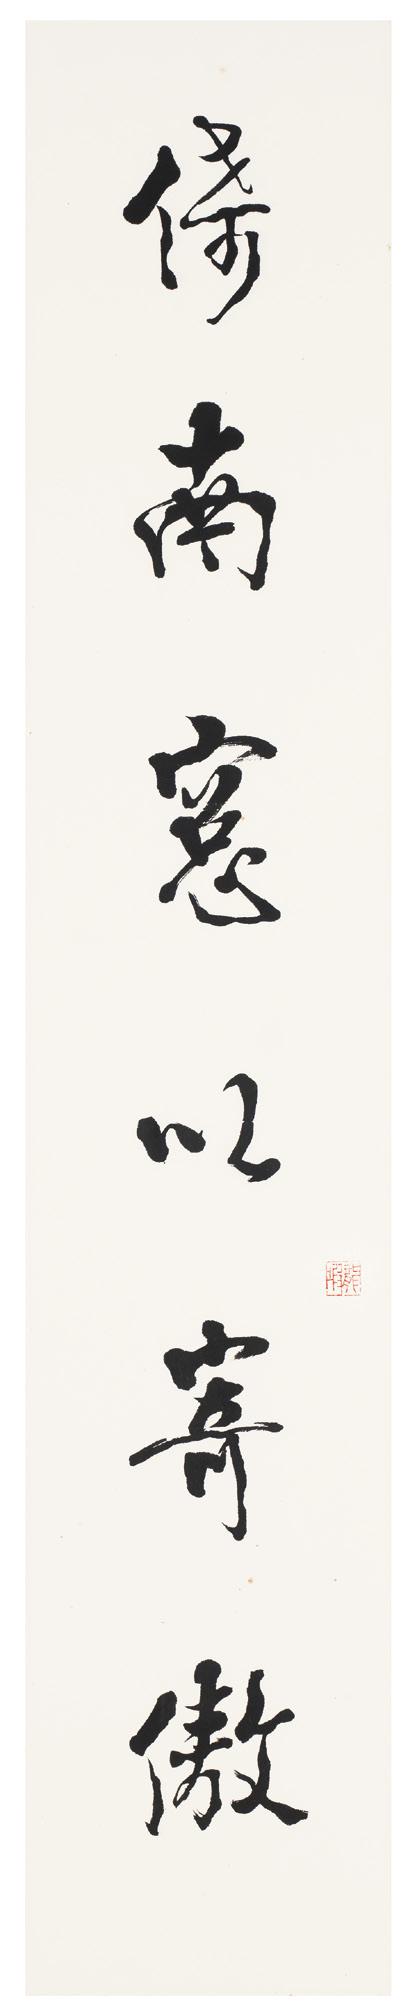 倚南窓以寄傲